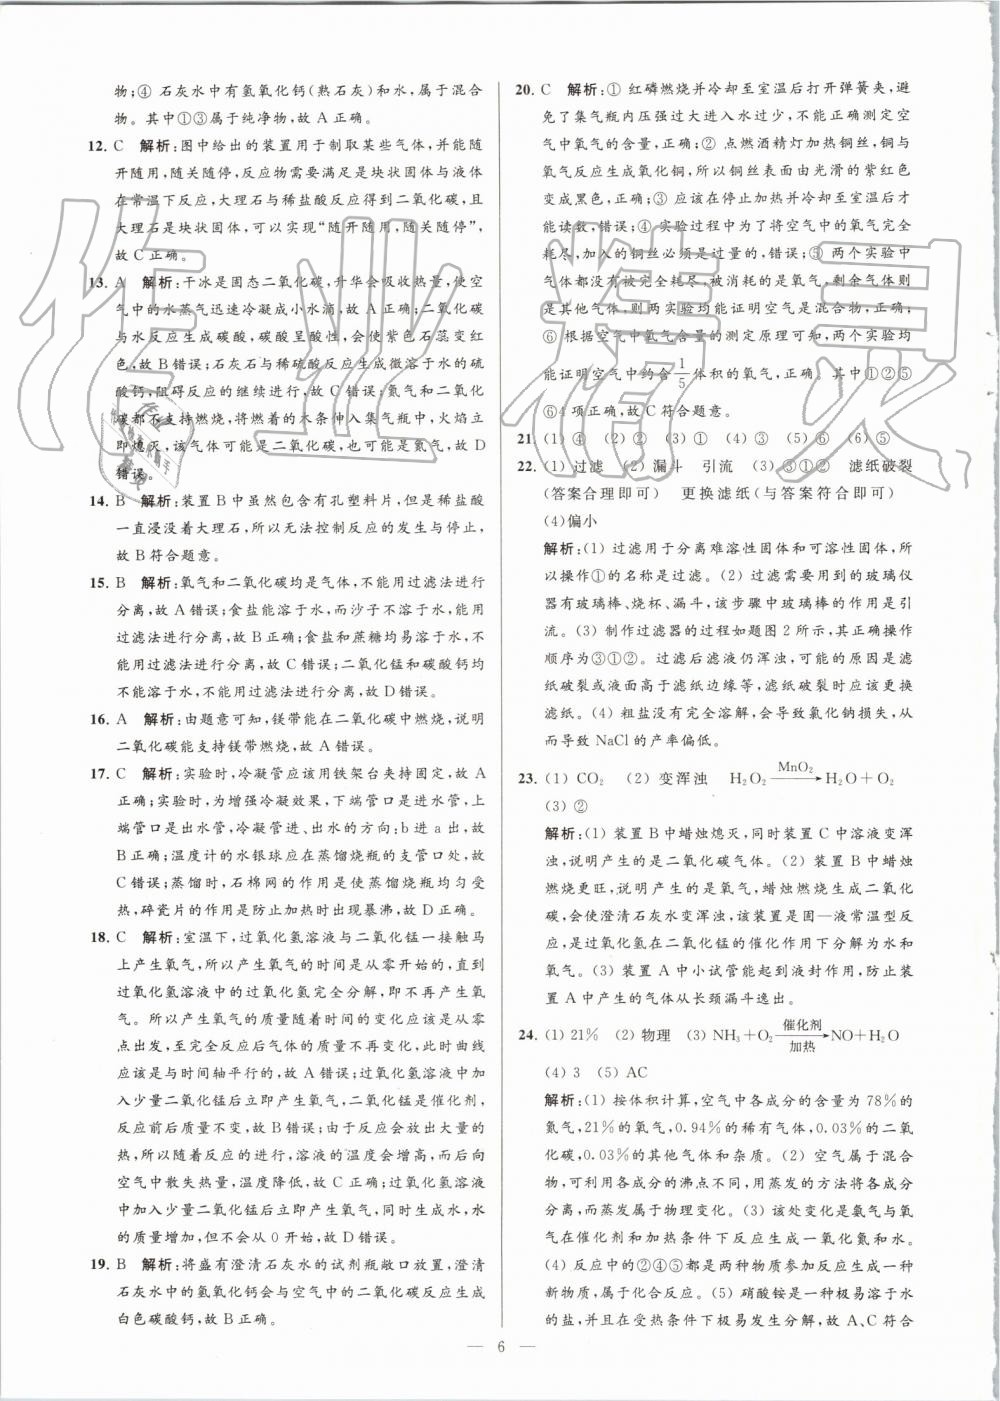 物;④ 石灰水中有氢氧化钙(熟石灰)和水,属于混合
物。其中①③属于纯净物,故 A 正确。
12. C 解析:图中给出的装置用于制取某些气体,并能随
开随用,随关随停,反应物需要满足是块状固体与液体
在常温下反应,大理石与稀盐酸反应得到二氧化碳,且
大理石是块状固体,可以实现“随开随用,随关随停”,
故 C 正确。
13. A 解析:干冰是固态二氧化碳,升华会吸收热量,使空
气中的水蒸气迅速冷凝成小水滴,故 A 正确;二氧化碳
与水反应生成碳酸,碳酸呈酸性,会使紫色石蕊变红
色,故 B 错误;石灰石与稀硫酸反应生成微溶于水的硫
酸钙,阻碍反应的继续进行,故 C 错误;氮气和二氧化
碳都不支持燃烧,将燃着的木条伸入集气瓶中,火焰立
即熄灭,该气体可能是二氧化碳,也可能是氮气,故 D
错误。
14. B 解析:装置 B 中虽然包含有孔塑料片,但是稀盐酸
一直浸没着大理石,所以无法控制反应的发生与停止,
故 B 符合题意。
15. B 解析:氧气和二氧化碳均是气体,不能用过滤法进行
分离,故 A 错误;食盐能溶于水,而沙子不溶于水,能用
过滤法进行分离,故 B 正确;食盐和蔗糖均易溶于水,不
能用过滤法进行分离,故 C 错误;二氧化锰和碳酸钙均
不能溶于水,不能用过滤法进行分离,故 D 错误。
16. A 解析:由题意可知,镁带能在二氧化碳中燃烧,说明
二氧化碳能支持镁带燃烧,故 A 错误。
17. C 解析:实验时,冷凝管应该用铁架台夹持固定,故 A
正确;实验时,为增强冷凝效果,下端管口是进水管,上
端管口是出水管,冷凝管进、出水的方向:b 进 a 出,故
B 正确;温度计的水银球应在蒸馏烧瓶的支管口处,故
C 错误;蒸馏时,石棉网的作用是使蒸馏烧瓶均匀受
热,碎瓷片的作用是防止加热时出现暴沸,故 D 正确。
18. C 解析:室温下,过氧化氢溶液与二氧化锰一接触马
上产生氧气,所以产生氧气的时间是从零开始的,直到
过氧化氢溶液中的过氧化氢完全分解,即不再产生氧
气。所以产生氧气的质量随着时间的变化应该是从零
点出发,至完全反应后气体的质量不再变化,此时曲线
应该是与时间轴平行的,故 A 错误;过氧化氢溶液中
加入少量二氧化锰后立即产生氧气,二氧化锰是催化剂,
反应前后质量不变,故 B 错误;由于反应会放出大量的
热,所以随着反应的进行,溶液的温度会增高,而后向
空气中散失热量,温度降低,故 C 正确;过氧化氢溶液
中加入少量二氧化锰后立即产生氧气,同时生成水,水
的质量增加,但不会从 0 开始,故 D 错误。
19. B 解析:将盛有澄清石灰水的试剂瓶敞口放置,澄清
石灰水中的氢氧化钙会与空气中的二氧化碳反应生成
白色碳酸钙,故 B 正确。
20. C 解析:① 红磷燃烧并冷却至室温后打开弹簧夹,避
免了集气瓶内压强过大进入水过少,不能准确测定空
气中氧气的含量,正确;② 点燃酒精灯加热铜丝,铜与
氧气反应生成氧化铜,所以铜丝表面由光滑的紫红色
变成黑色,正确;③ 应该在停止加热并冷却至室温后才
能读数,错误;④ 实验过程中为了将空气中的氧气完全
耗尽,加入的铜丝必须是过量的,错误;⑤ 两个实验中
气体没有被完全耗尽,被消耗的是氧气,剩余气体则
是其他气体,则两实验均能证明空气是混合物,正确;
⑥ 根据空气中氧气含量的测定原理可知,两个实验均
能证明空气中约含1/5体积的氧气,正确。其中①②⑤
⑥4 项正确,故 C 符合题意。
21. (1) ④ (2) ② (3) ① (4) ③ (5) ⑥ (6) ⑤
22. (1) 过滤 (2) 漏斗 引流 (3) ③①② 滤纸破裂
(答案合理即可) 更换滤纸(与答案符合即可)
(4)偏小
解析:(1) 过滤用于分离难溶性固体和可溶性固体,所
以操作①的名称是过滤。(2) 过滤需要用到的玻璃仪
器有玻璃棒、烧杯、漏斗,该步骤中玻璃棒的作用是引
流。(3) 制作过滤器的过程如题图 2 所示,其正确操作
顺序为③①②。过滤后滤液仍浑浊,可能的原因是滤
纸破裂或液面高于滤纸边缘等,滤纸破裂时应该更换
滤纸。(4) 粗盐没有完全溶解,会导致氯化钠损失,从
而导致 NaCl 的产率偏低。
23. (1) CO₂ (2) 变浑浊 H₂O₂ —MnO₂→ H₂O+O₂
(3) ②
解析:(1) 装置 B 中蜡烛熄灭,同时装置 C 中溶液变浑
浊,说明产生的是二氧化碳气体。(2) 装置 B 中蜡烛
燃烧更旺,说明产生的是氧气,蜡烛燃烧生成二氧化
碳,会使澄清石灰水变浑浊,该装置是固—液常温型反
应,是过氧化氢在二氧化锰的催化作用下分解为水和
氧气。(3) 装置 A 中小试管能起到液封作用,防止装
置 A 中产生的气体从长颈漏斗逸出。
24. (1) 21% (2) 物理 (3) NH₃+O₂ —催化剂/加热→ NO+H₂O
(4) 3 (5) AC
解析:(1) 按体积计算,空气中各成分的含量为 78%的
氮气,21%的氧气,0.94%的稀有气体,0.03%的二氧
化碳,0.03%的其他气体和杂质。(2) 空气属于混合
物,可利用各成分的沸点不同,用蒸发的方法将各成分
分离,而蒸发属于物理变化。(3) 该处变化是氨气与氧
气在催化剂和加热条件下反应生成一氧化氮和水。
(4) 反应中的②④⑤都是两种物质参加反应生成一种
新物质,属于化合反应。(5) 硝酸铵是一种极易溶于水
的盐,并且在受热条件下极易发生分解,故 A、C 符合
— 6 —
作业精灵